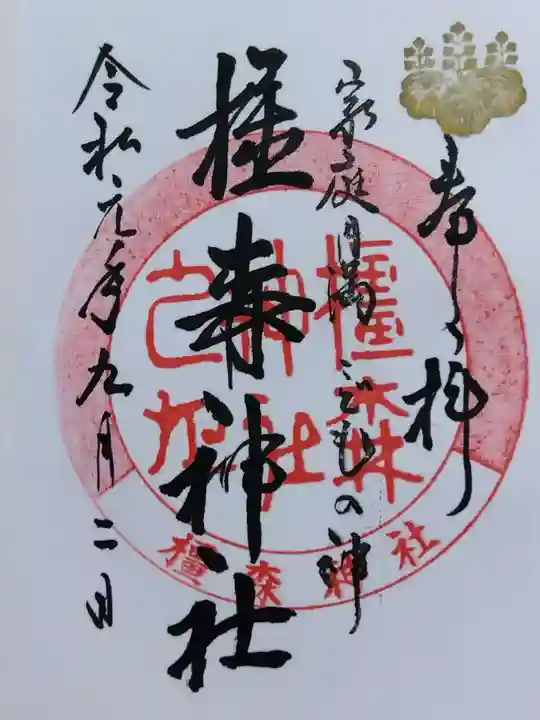 奉拝
家庭円満 こどもの神
橿森神社
令和元年九月二日
橿森
神社
之印
橿森神社